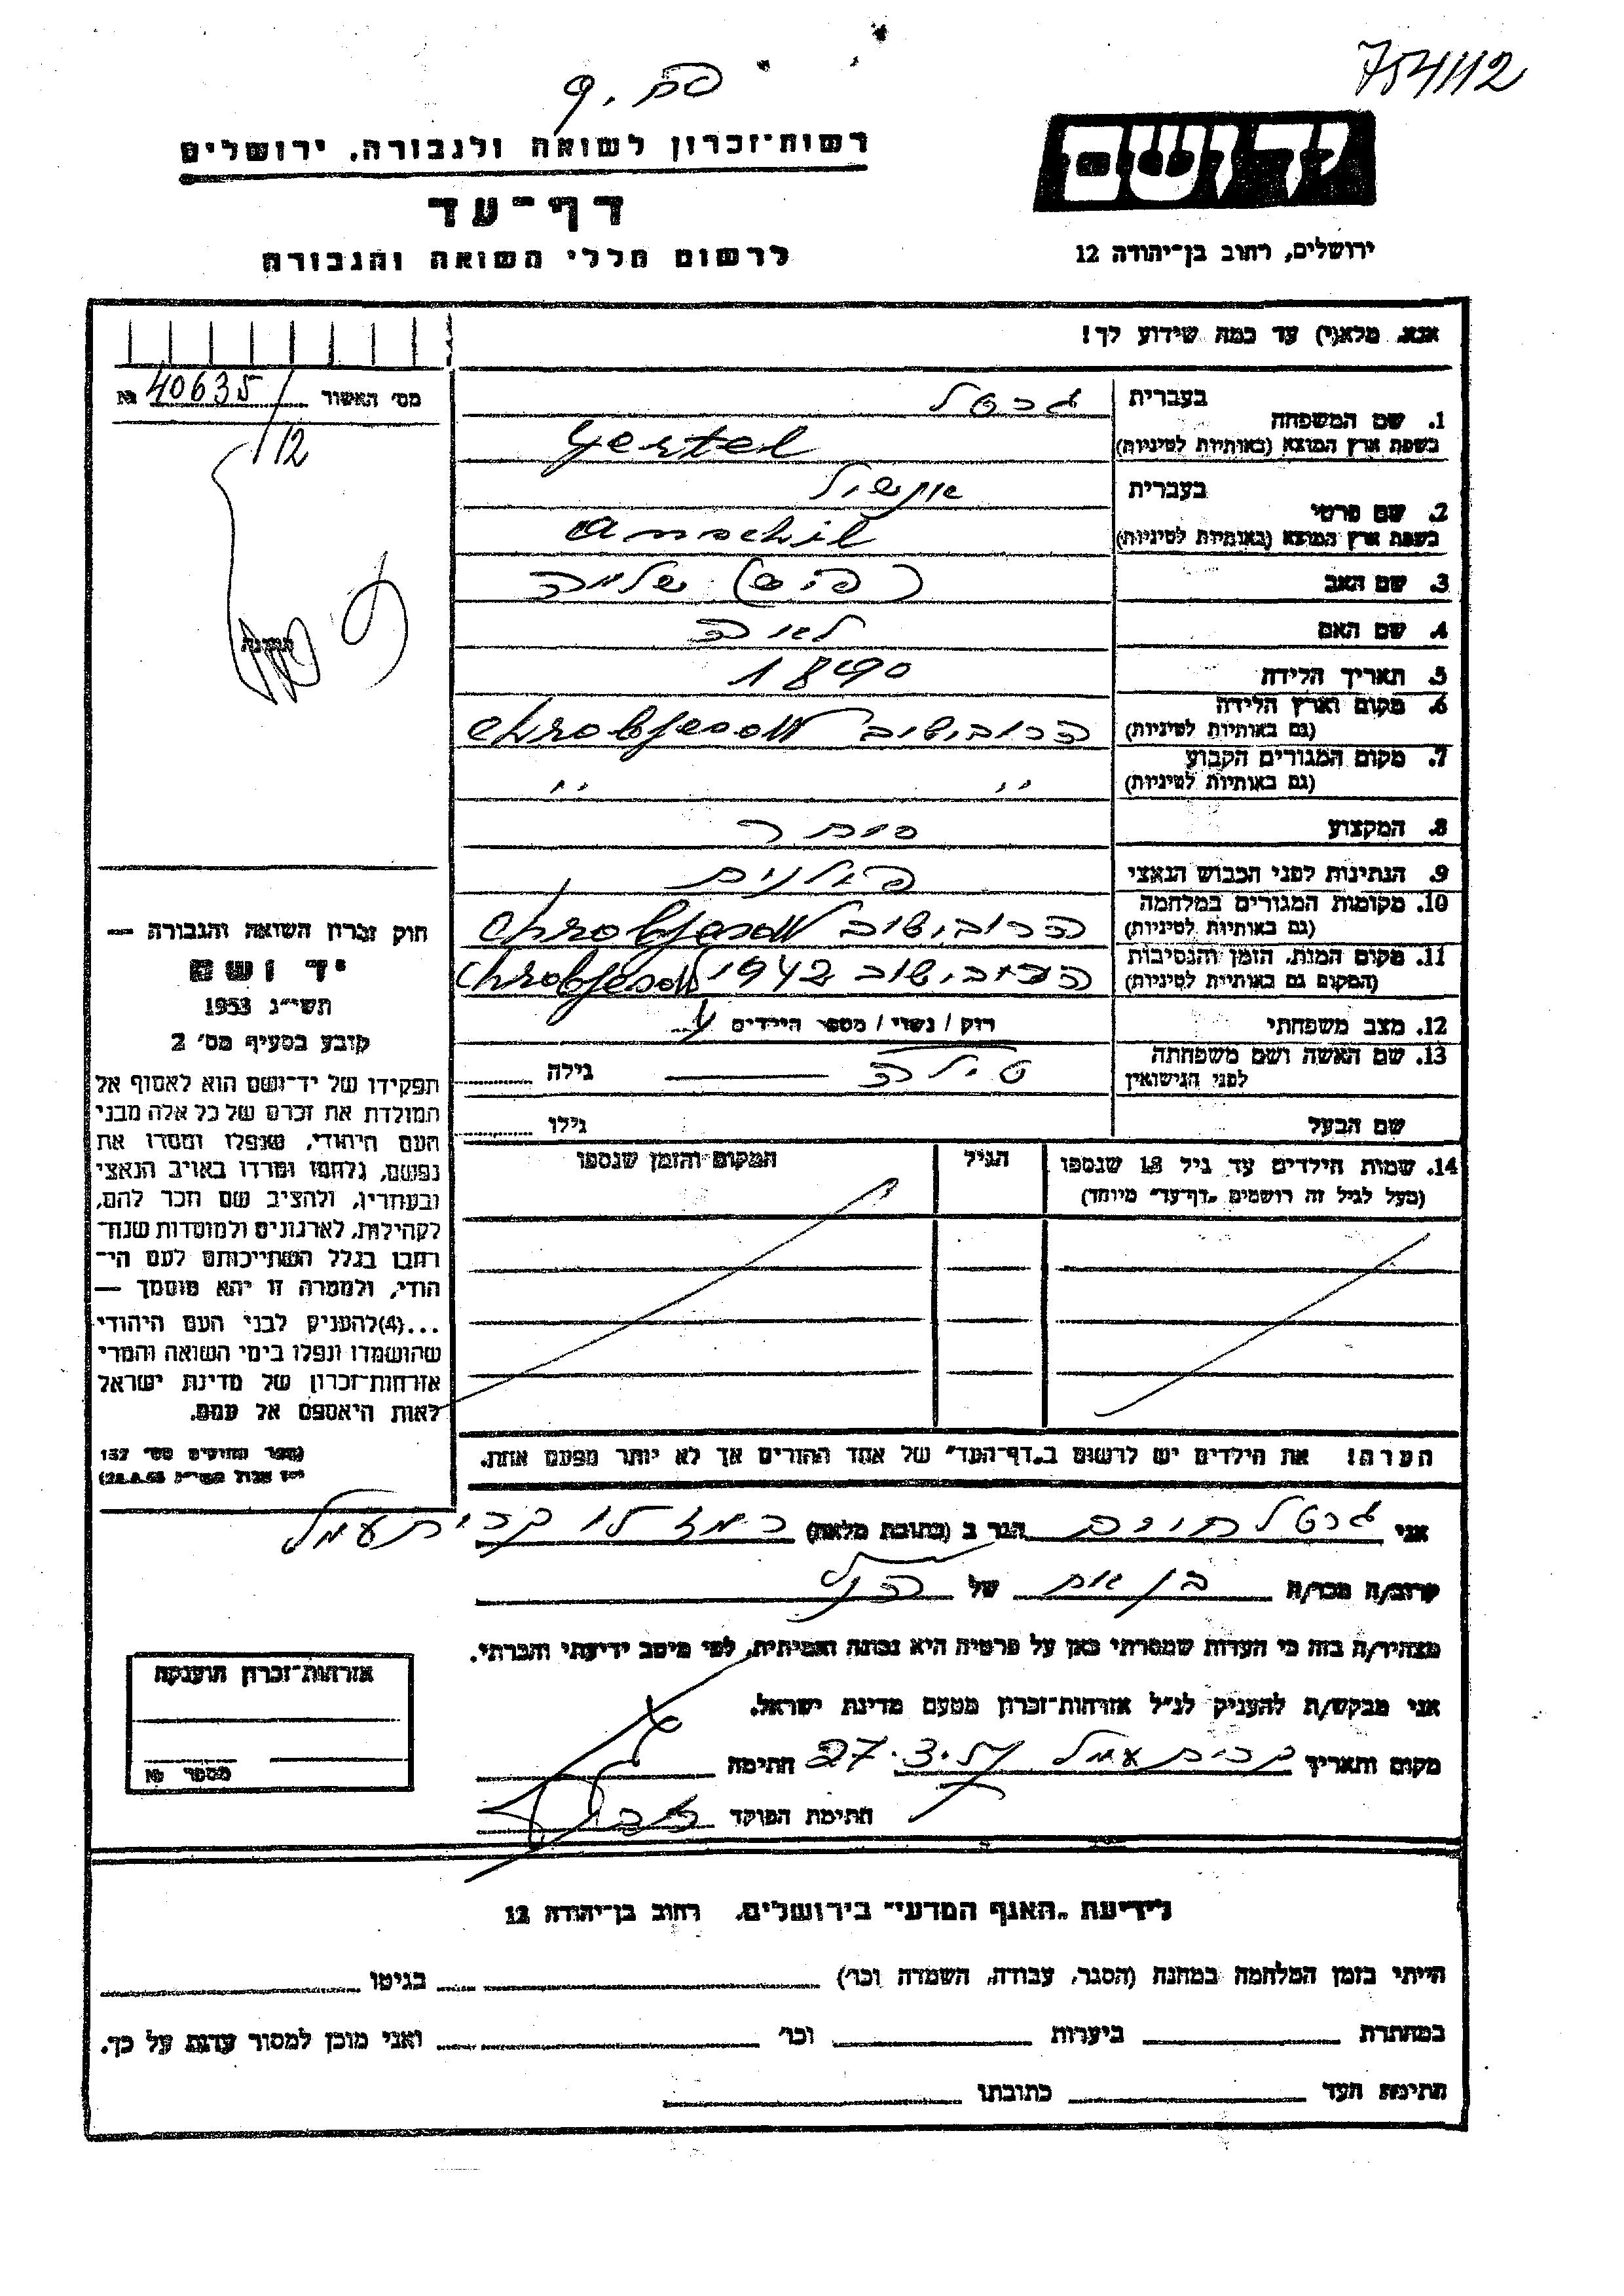 754/12
רשות־זכרון לשואה ולגבורה, ירושלים
דף־עד
לרשום חללי השואה והגבורה
יד ושם
ירושלים, רחוב בן־יהודה 12
אנא, מלא(י) עד כמה שידוע לך!
מס׳ האשור 40635 №
12
1. שם המשפחה
בעברית גרטל
בשפת ארץ המוצא (באותיות לטיניות) Gertel
2. שם פרטי
בעברית אנשיל
בשפת ארץ המוצא (באותיות לטיניות) Anschil
3. שם האב שלמה
4. שם האם לאה
5. תאריך הלידה 1890
6. מקום וארץ הלידה
(גם באותיות לטיניות) הרובישוב Chrobjesow
7. מקום המגורים הקבוע
(גם באותיות לטיניות) " "
8. המקצוע סוחר
9. הנתינות לפני הכבוש הנאצי פולנית
10. מקומות המגורים במלחמה
(גם באותיות לטיניות) הרובישוב Chrobjesow
11. מקום המות, הזמן והנסיבות
(המקום גם באותיות לטיניות) הרובישוב 1942 Chrobjesow
12. מצב משפחתי רוק / נשוי / מספר הילדים
13. שם האשה ושם משפחתה
לפני הנישואין טילה גילה
שם הבעל גילו
14. שמות הילדים עד גיל 18 שנספו
(מעל לגיל זה רושמים „דף־עד” מיוחד)
הגיל
המקום והזמן שנספו
הערה! את הילדים יש לרשום ב„דף־העד” של אחד ההורים אך לא יותר מפעם אחת.
חוק זכרון השואה והגבורה —
יד ושם
תשי״ג 1953
קובע בסעיף מס׳ 2
תפקידו של יד־ושם הוא לאסוף אל
המולדת את זכרם של כל אלה מבני
העם היהודי, שנפלו ומסרו את
נפשם, נלחמו ומרדו באויב הנאצי
ובעוזריו, ולהציב שם וזכר להם,
לקהילות, לארגונים ולמוסדות שנח־
רבו בגלל השתייכותם לעם הי־
הודי, ולמטרה זו יהא מוסמך —
...(4)להעניק לבני העם היהודי
שהושמדו ונפלו בימי השואה והמרי
אזרחות־זכרון של מדינת ישראל
לאות היאספם אל עמם.
(ספר החוקים מס׳ 132
אני גרטל חיים הגר ב (כתובת מלאה) רמז קרית עמל
קרוב/ה מכר/ה בן אח של הנ״ל
מצהיר/ה בזה כי העדות שמסרתי כאן על פרטיה היא נכונה ואמיתית, לפי מיטב ידיעתי והכרתי.
אני מבקש/ת להעניק לנ״ל אזרחות־זכרון מטעם מדינת ישראל.
מקום ותאריך קרית עמל 27.3.57 חתימה
חתימת הפוקד
אזרחות־זכרון הוענקה
מספר №
לידיעת „האגף המדעי” בירושלים, רחוב בן־יהודה 12
הייתי בזמן המלחמה במחנה (הסגר, עבודה, השמדה וכו׳) בגיטו
במחתרת ביערות וכו׳ ואני מוכן למסור עדות על כך.
חתימת העד כתובתו